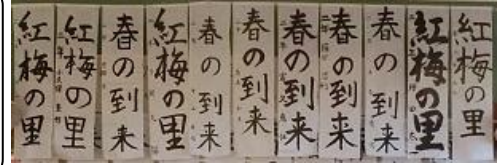 紅梅の里
紅梅の里
春の到来
春の到来
春の到来
春の到来
春の到来
紅梅の里
春の到来
紅梅の里
紅梅の里